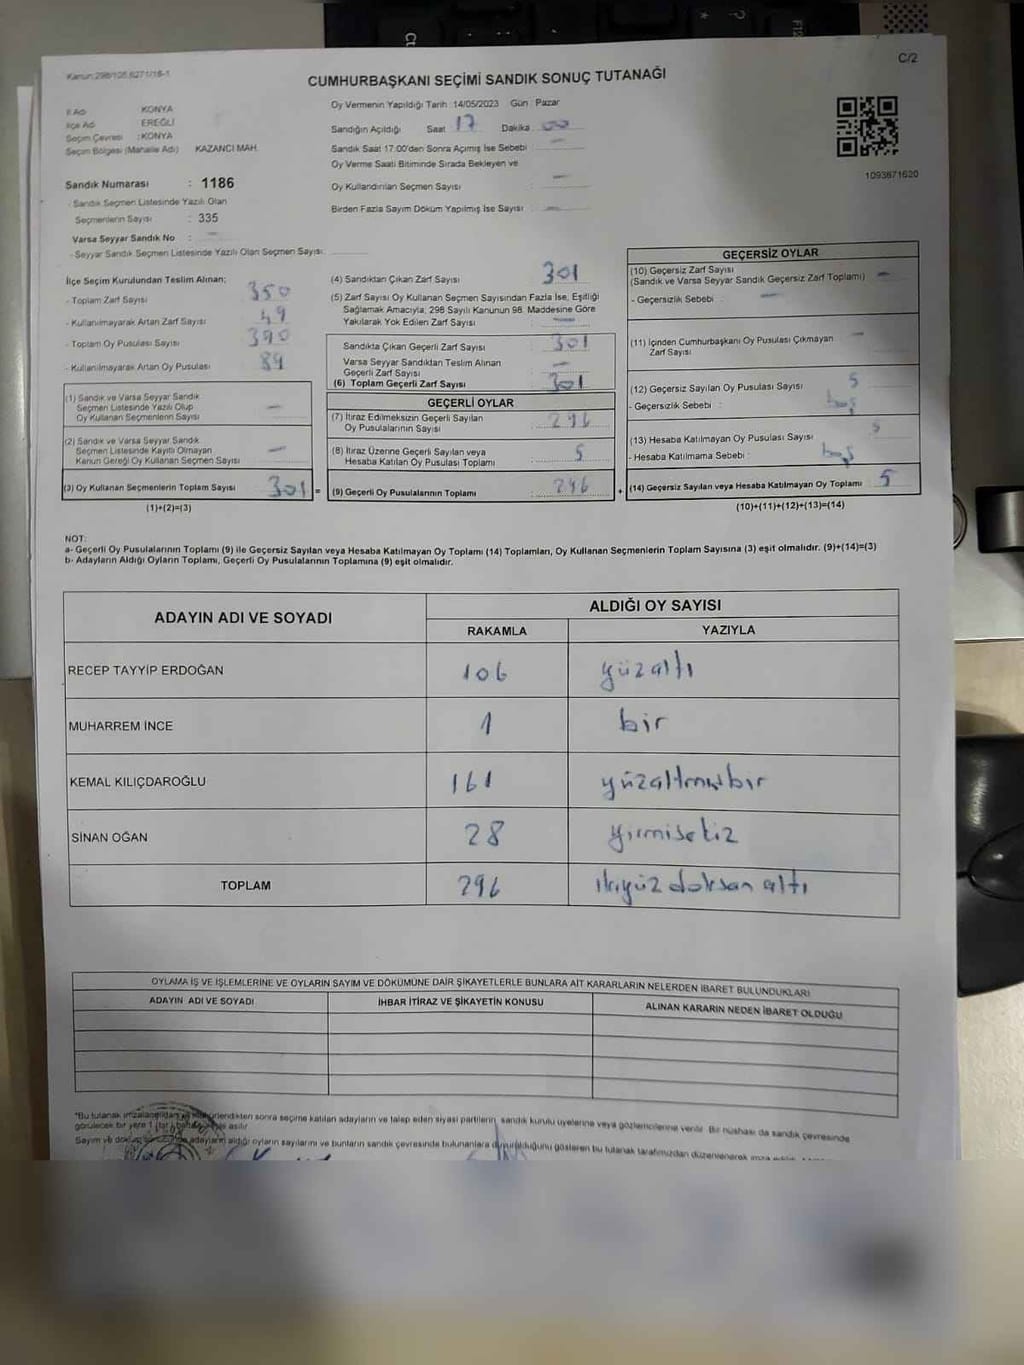 C/2
Kanun:298/105,6271/18-1
CUMHURBAŞKANI SEÇİMİ SANDIK SONUÇ TUTANAĞI
İl Adı KONYA
İlçe Adı EREĞLİ
Seçim Çevresi :KONYA
Seçim Bölgesi (Mahalle Adı) KAZANCI MAH.
Sandık Numarası : 1186
- Sandık Seçmen Listesinde Yazılı Olan
Seçmenlerin Sayısı : 335
Varsa Seyyar Sandık No : -
- Seyyar Sandık Seçmen Listesinde Yazılı Olan Seçmen Sayısı:
Oy Vermenin Yapıldığı Tarih :14/05/2023 Gün : Pazar
Sandığın Açıldığı Saat 17 Dakika 00
Sandık Saat 17:00'den Sonra Açımış İse Sebebi : -
Oy Verme Saati Bitiminde Sırada Bekleyen ve
Oy Kullandırılan Seçmen Sayısı : -
Birden Fazla Sayım Döküm Yapılmış İse Sayısı : -
1093871620
İlçe Seçim Kurulundan Teslim Alınan;
- Toplam Zarf Sayısı : 350
- Kullanılmayarak Artan Zarf Sayısı : 49
- Toplam Oy Pusulası Sayısı : 390
- Kullanılmayarak Artan Oy Pusulası : 89
(1) Sandık ve Varsa Seyyar Sandık
Seçmen Listesinde Yazılı Olup
Oy Kullanan Seçmenlerin Sayısı -
(2) Sandık ve Varsa Seyyar Sandık
Seçmen Listesinde Kayıtlı Olmayan
Kanun Gereği Oy Kullanan Seçmen Sayısı -
(3) Oy Kullanan Seçmenlerin Toplam Sayısı 301 =
(1)+(2)=(3)
(4) Sandıktan Çıkan Zarf Sayısı : 301
(5) Zarf Sayısı Oy Kullanan Seçmen Sayısından Fazla İse, Eşitliği
Sağlamak Amacıyla, 298 Sayılı Kanunun 98. Maddesine Göre
Yakılarak Yok Edilen Zarf Sayısı : -
Sandıkta Çıkan Geçerli Zarf Sayısı : 301
Varsa Seyyar Sandıktan Teslim Alınan
Geçerli Zarf Sayısı : -
(6) Toplam Geçerli Zarf Sayısı : 301
GEÇERLİ OYLAR
(7) İtiraz Edilmeksizin Geçerli Sayılan
Oy Pusulalarının Sayısı : 296
(8) İtiraz Üzerine Geçerli Sayılan veya
Hesaba Katılan Oy Pusulası Toplamı : 5
(9) Geçerli Oy Pusulalarının Toplamı : 296 +
GEÇERSİZ OYLAR
(10) Geçersiz Zarf Sayısı
(Sandık ve Varsa Seyyar Sandık Geçersiz Zarf Toplamı) : -
- Geçersizlik Sebebi : -
(11) İçinden Cumhurbaşkanı Oy Pusulası Çıkmayan
Zarf Sayısı : -
(12) Geçersiz Sayılan Oy Pusulası Sayısı : 5
- Geçersizlik Sebebi : boş
(13) Hesaba Katılmayan Oy Pusulası Sayısı : 5
- Hesaba Katılmama Sebebi : boş
(14) Geçersiz Sayılan veya Hesaba Katılmayan Oy Toplamı : 5
(10)+(11)+(12)+(13)=(14)
NOT:
a- Geçerli Oy Pusulalarının Toplamı (9) ile Geçersiz Sayılan veya Hesaba Katılmayan Oy Toplamı (14) Toplamları, Oy Kullanan Seçmenlerin Toplam Sayısına (3) eşit olmalıdır. (9)+(14)=(3)
b- Adayların Aldığı Oyların Toplamı, Geçerli Oy Pusulalarının Toplamına (9) eşit olmalıdır.
ADAYIN ADI VE SOYADI ALDIĞI OY SAYISI
RAKAMLA YAZIYLA
RECEP TAYYİP ERDOĞAN 106 yüzaltı
MUHARREM İNCE 1 bir
KEMAL KILIÇDAROĞLU 161 yüzaltmışbir
SİNAN OĞAN 28 yirmisekiz
TOPLAM 296 ikiyüz doksan altı
OYLAMA İŞ VE İŞLEMLERİNE VE OYLARIN SAYIM VE DÖKÜMÜNE DAİR ŞİKAYETLERLE BUNLARA AİT KARARLARIN NELERDEN İBARET BULUNDUKLARI
ADAYIN ADI VE SOYADI İHBAR İTİRAZ VE ŞİKAYETİN KONUSU ALINAN KARARIN NEDEN İBARET OLDUĞU
*Bu tutanak imzalandıktan ve mühürlendikten sonra seçime katılan adayların ve talep eden siyasi partilerin, sandık kurulu üyelerine veya gözlemcilerine verilir. Bir nüshası da sandık çevresinde
görülecek bir yere 1 (bir) hafta asılır
Sayım ve döküm adayların aldığı oyların sayılarını ve bunların sandık çevresinde bulunanlara duyurulduğunu gösteren bu tutanak tarafımızdan düzenlenerek imza edildi.